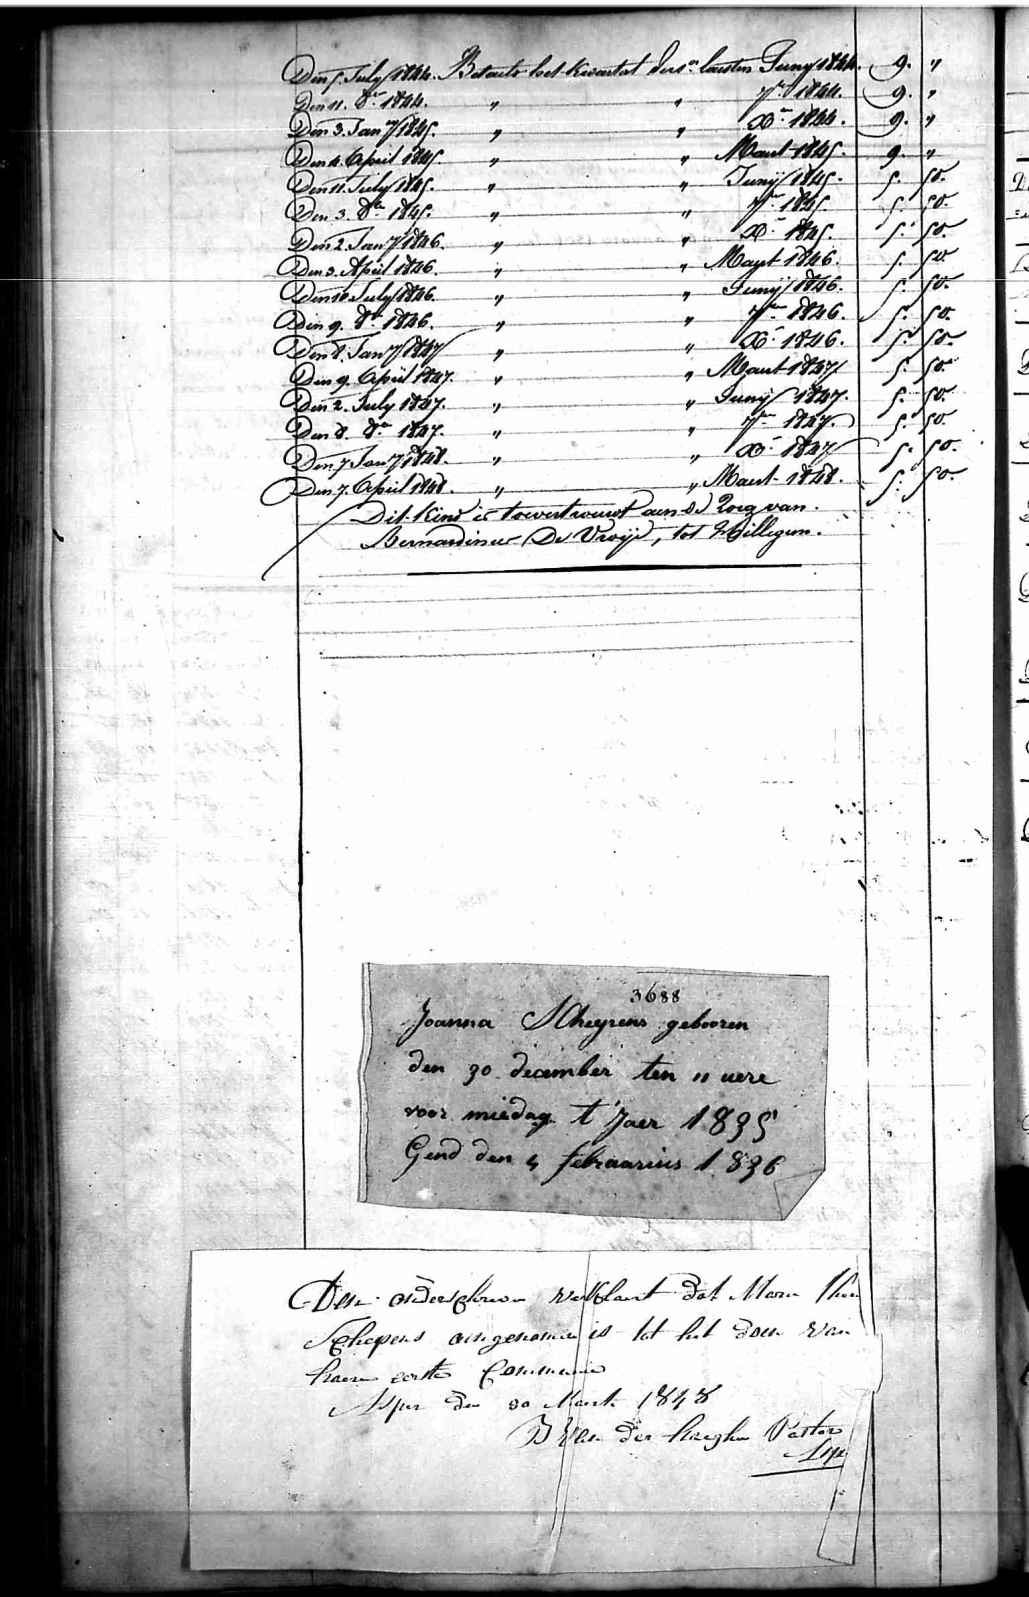 Den 5. July 1844. Betaelt het kwartal ders.n laesten Juny 1844. 9. "
Den 11. 8.er 1844. " " 7.er 1844. 9. "
Den 3. Jan.y 1845. " " X.er 1844. 9. "
Den 4. April 1845. " " Maert 1845. 9. "
Den 11. July 1845. " " Junij 1845. 5. 50.
Den 3. 8.er 1845. " " 7.er 1845. 5. 50.
Den 2. Jan.y 1846. " " X.r 1845. 5. 50.
Den 3. April 1846. " " Maert 1846. 5. 50
Den 10. July 1846. " " Junij 1846. 5. 50.
Den 9. 8.er 1846. " " 7.er 1846. 5. 50.
Den 8. Jan.y 1847 " " X.r 1846. 5. 50.
Den 9. April 1847. " " Maert 1847 5. 50.
Den 2. July 1847. " " Junij 1847. 5. 50.
Den 8. 8.er 1847. " " 7.er 1847. 5. 50
Den 7 Jan.y 1848. " " X.r 1847 5. 50.
Den 7. April 1848. " " Maert 1848. 5. 50.
Dit Kind is toevertrouwt aen de Zorg van
Bernardina De Vroije, tot Hillegem.
3688
Joanna Scheyrens gebooren
den 30 december ten 11 uere
voor miedag t'Jaer 1835
Gend den 4 febraarius 1836
Den onderschreven verklaert dat Maria
Schepens aengenomen is tot het doen van
haere eerste Communie
Asper den 30 Maert 1848
B Van der haeghen Pastor
Asper